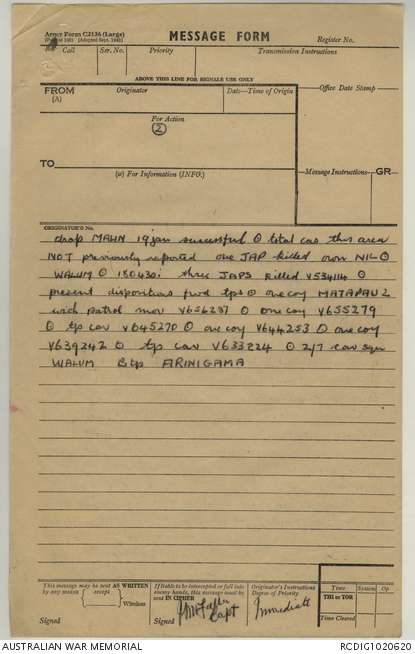 Army Form C2136 (Large)
MESSAGE FORM
Register No.
(Adapted Sept. 1942)
Call
Ser. No.
Priority
Transmission Instructions
ABOVE THIS LINE FOR SIGNALS USE ONLY
FROM
(A)
Originator
Date—Time of Origin
Office Date Stamp
For Action
(2)
TO
(W) For Information (INFO.)
Message Instructions
GR
ORIGINATOR'S No.
drop MALIN 19 jan successful O total cas this area
NOT previously reported one JAP killed own NIL O
WALUM O 180430i three JAPS killed V534114 O
present dispositions fwd tps O one coy MATAPAU 2
with patrol mov V656287 O one coy V655279
O tp cav V645270 O one coy V644253 O one coy
V639242 O tp cav V633224 O 2/7 cav sqn
WALUM Btp ARINIGAMA
This message may be sent AS WRITTEN
by any means except
Wireless
Signed
If liable to be intercepted or fall into
enemy hands, this message must be
sent IN CIPHER
Signed
Capt
Originator's Instructions
Degree of Priority
Immediate
Time
System
Op
THI or TOR
Time Cleared
AUSTRALIAN WAR MEMORIAL
RCDIG1020620